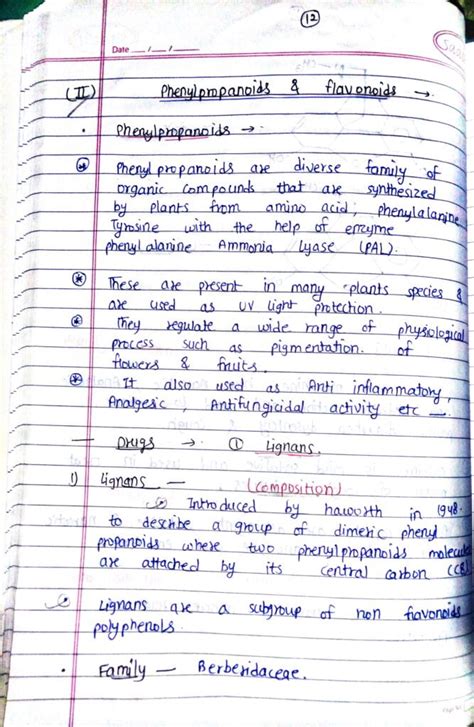 12
Date __/__/__
(II) Phenylpropanoids & flavonoids →
• Phenylpropanoids →
Phenyl propanoids are diverse family of
organic compounds that are synthesized
by plants from amino acid, phenylalanine
Tyrosine with the help of enzyme
phenyl alanine Ammonia lyase (PAL).
These are present in many plants species &
are used as UV light protection.
They regulate a wide range of physiological
process such as pigmentation. of
flowers & fruits.
It also used as Anti inflammatory,
Analgesic, Antifungicidal activity etc —.
— Drugs → ① Lignans.
1) Lignans — (composition)
Introduced by haworth in 1948.
to describe a group of dimeric phenyl
propanoids where two phenylpropanoids
are attached by its central carbon
Lignans are a subgroup of non flavonoids
polyphenols
• Family — Berberidaceae.